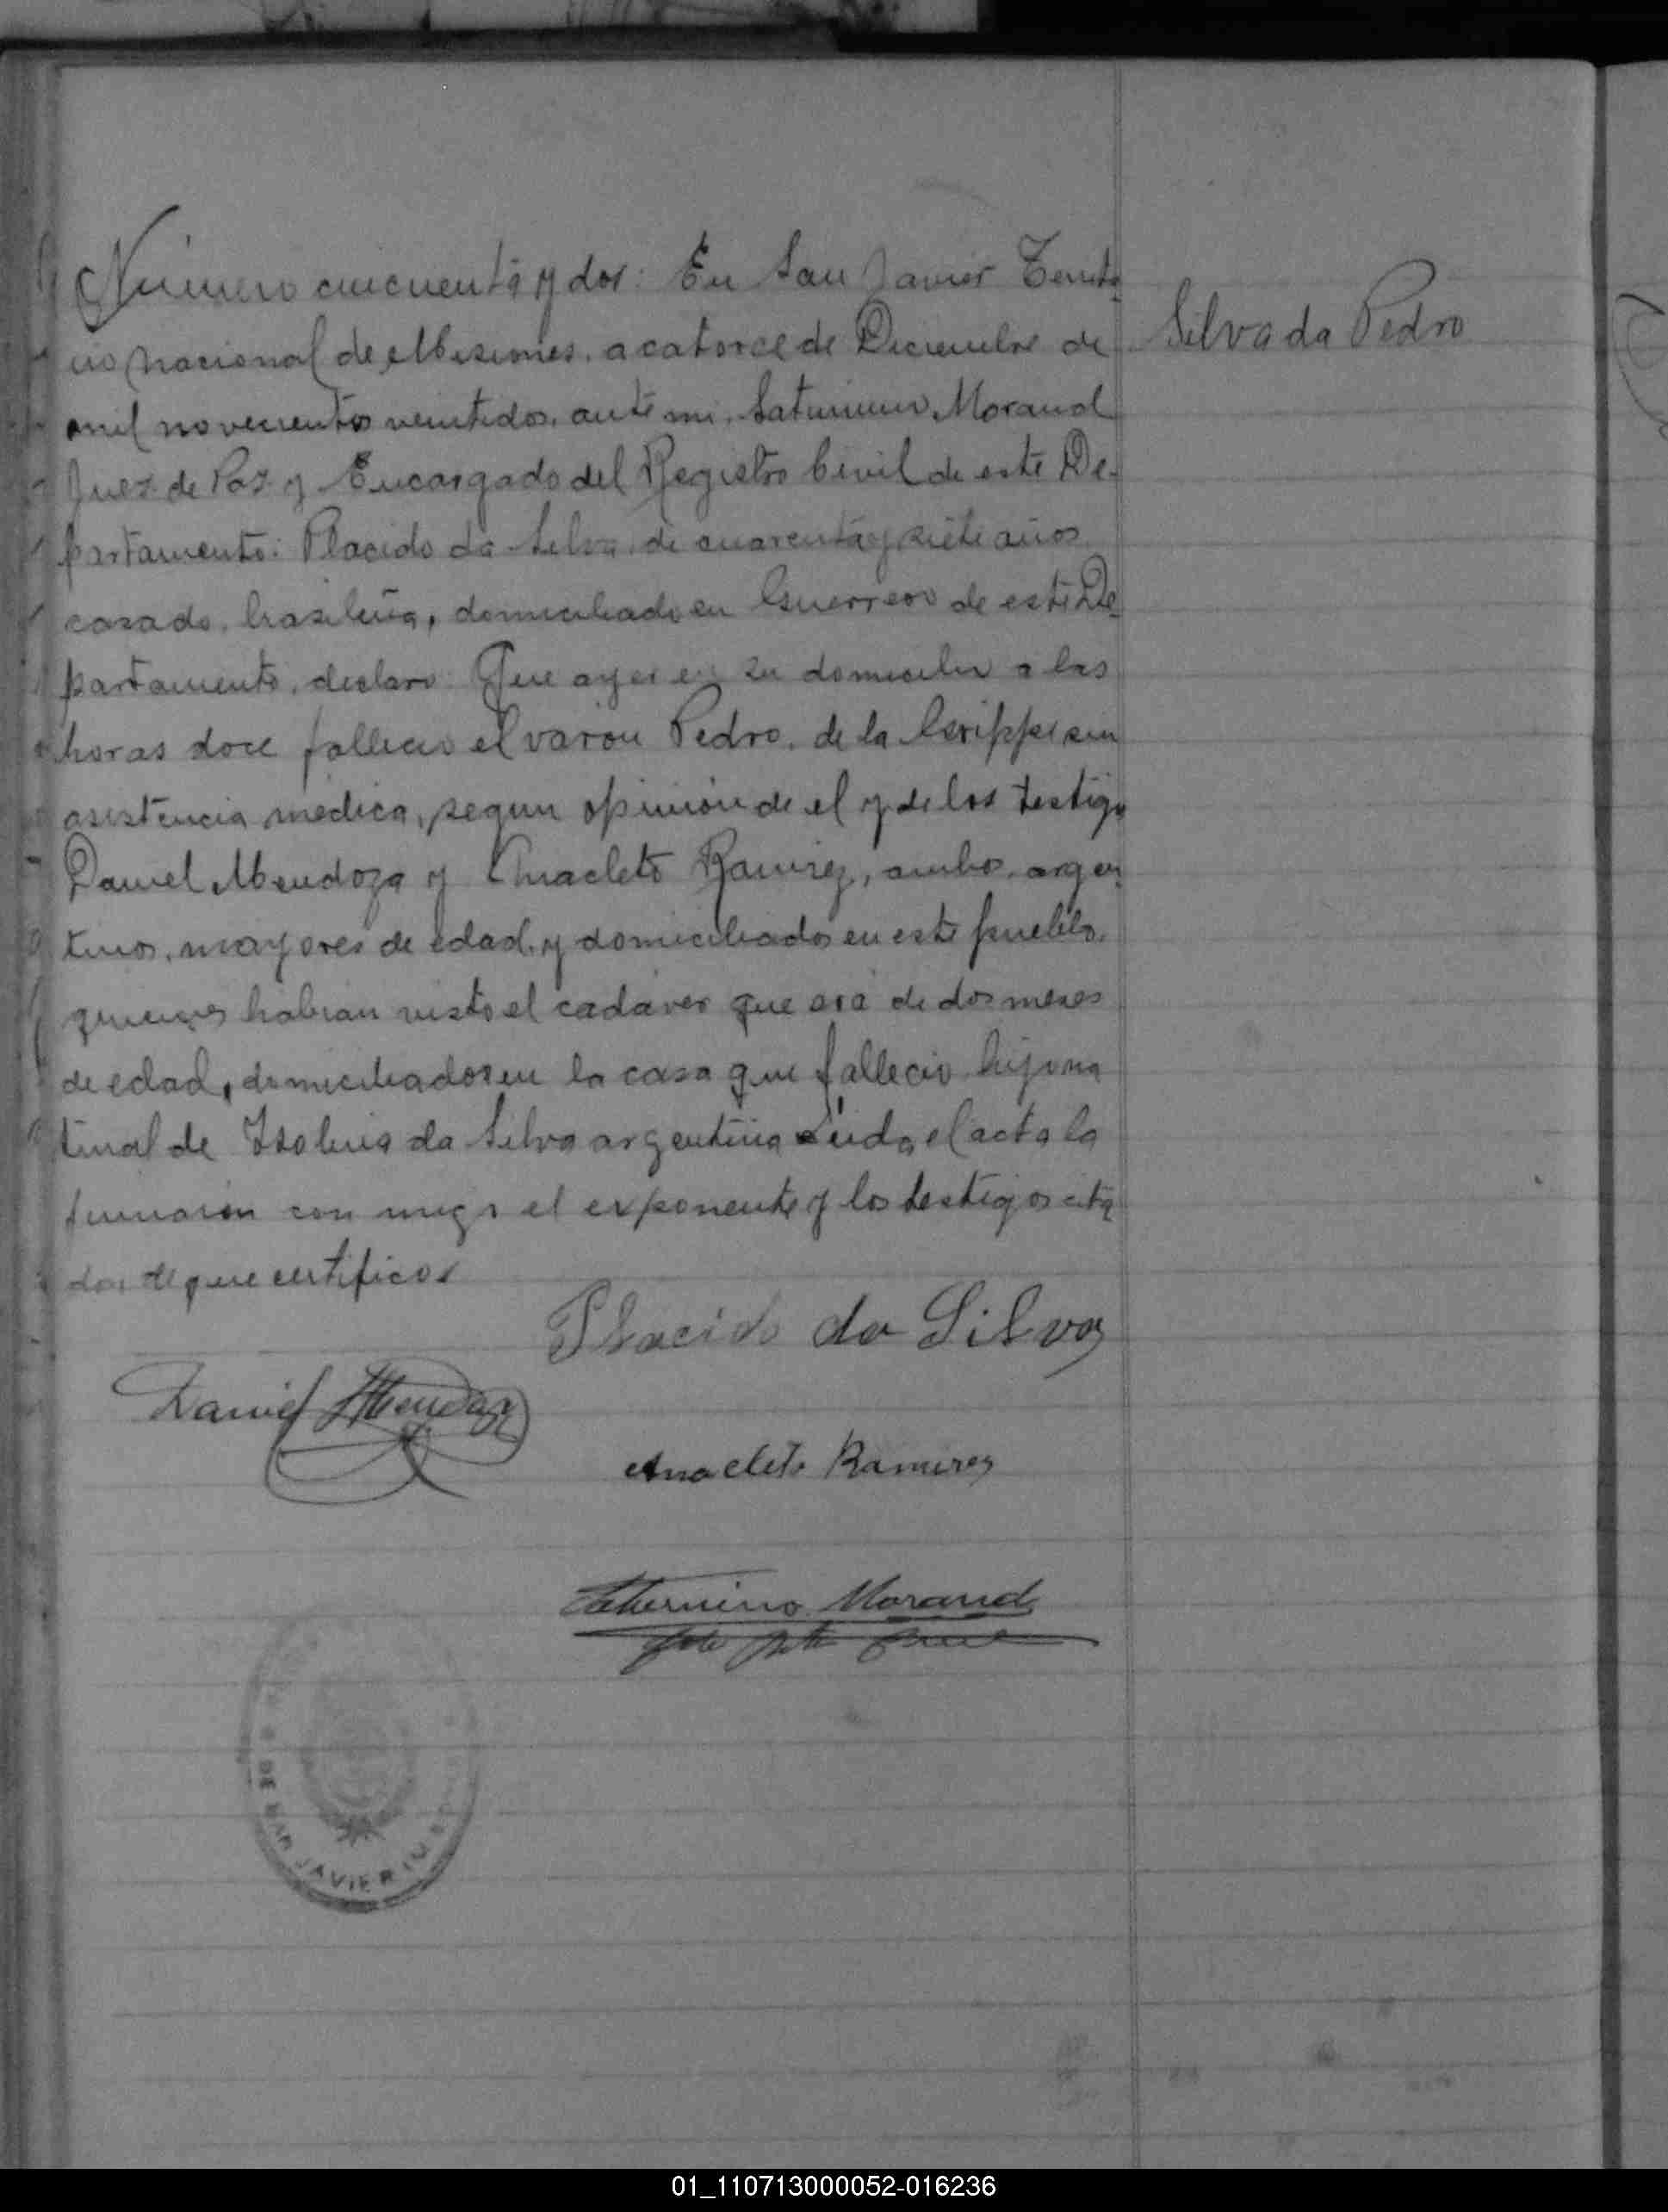 Número cincuenta y dos: En San Javier Territo-
rio nacional de Misiones, a catorce de Diciembre de
Silva da Pedro
mil novecientos veintidos, ante mi, Saturnino Morand
Juez de Paz y Encargado del Registro Civil de este De-
partamento: Placido da Silva, de cuarenta y siete años
casado, brasileña, domiciliado en Guerrero de este De-
partamento, declaro: Que ayer en su domicilio a las
horas doce fallecio el varon Pedro, de la Grippe sin
asistencia médica, segun opinión de el y de los testigo
Daniel Mendoza y Anacleto Ramirez, ambos argen-
tinos, mayores de edad, y domiciliados en este pueblo,
quienes habian visto el cadaver que era de dos meses
de edad, domiciliados en la casa que fallecio hijo na
tural de Isolina da Silva argentina Leida el acta la
firmaron con migo el exponente y los testigos cita
dos de que certifico
Placido da Silva
Daniel Mendoza
Anacleto Ramirez
Saturnino Morand
DE SAN JAVIER
01_110713000052-016236